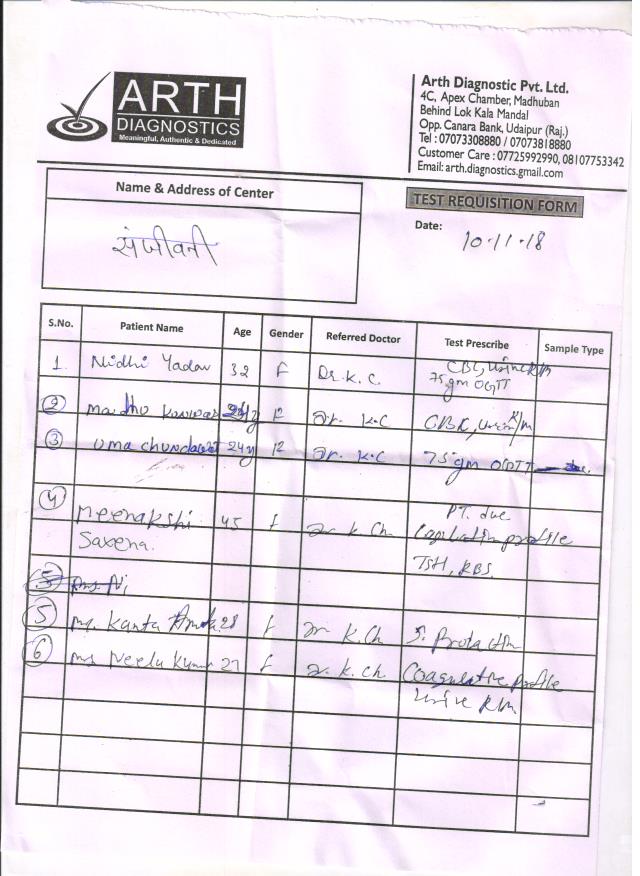 ARTH
DIAGNOSTICS
Meaningful, Authentic & Dedicated
Arth Diagnostic Pvt. Ltd.
4C, Apex Chamber, Madhuban
Behind Lok Kala Mandal
Opp. Canara Bank, Udaipur (Raj.)
Tel : 07073308880 / 07073818880
Customer Care : 07725992990, 08107753342
Email: arth.diagnostics.gmail.com
Name & Address of Center
संजीवनी
TEST REQUISITION FORM
Date: 10.11.18
S.No. Patient Name Age Gender Referred Doctor Test Prescribe Sample Type
1. Nidhi Yadav 32 F Dr. K. C. CBC, Urine R/M
75 gm OGTT
2 Madhu Dr. K.C CBC, Urine R/M
3 Uma 24y Dr. K.C 75 gm OGTT
4 Meenakshi 45 f Dr K. Ch PT. due
Saxena. profile
TSH, RBS.
5 Ms. Kanta 28 f Dr K. Ch S.
6 Ms Neelu 27 f Dr. K. Ch profile
Urine R/M